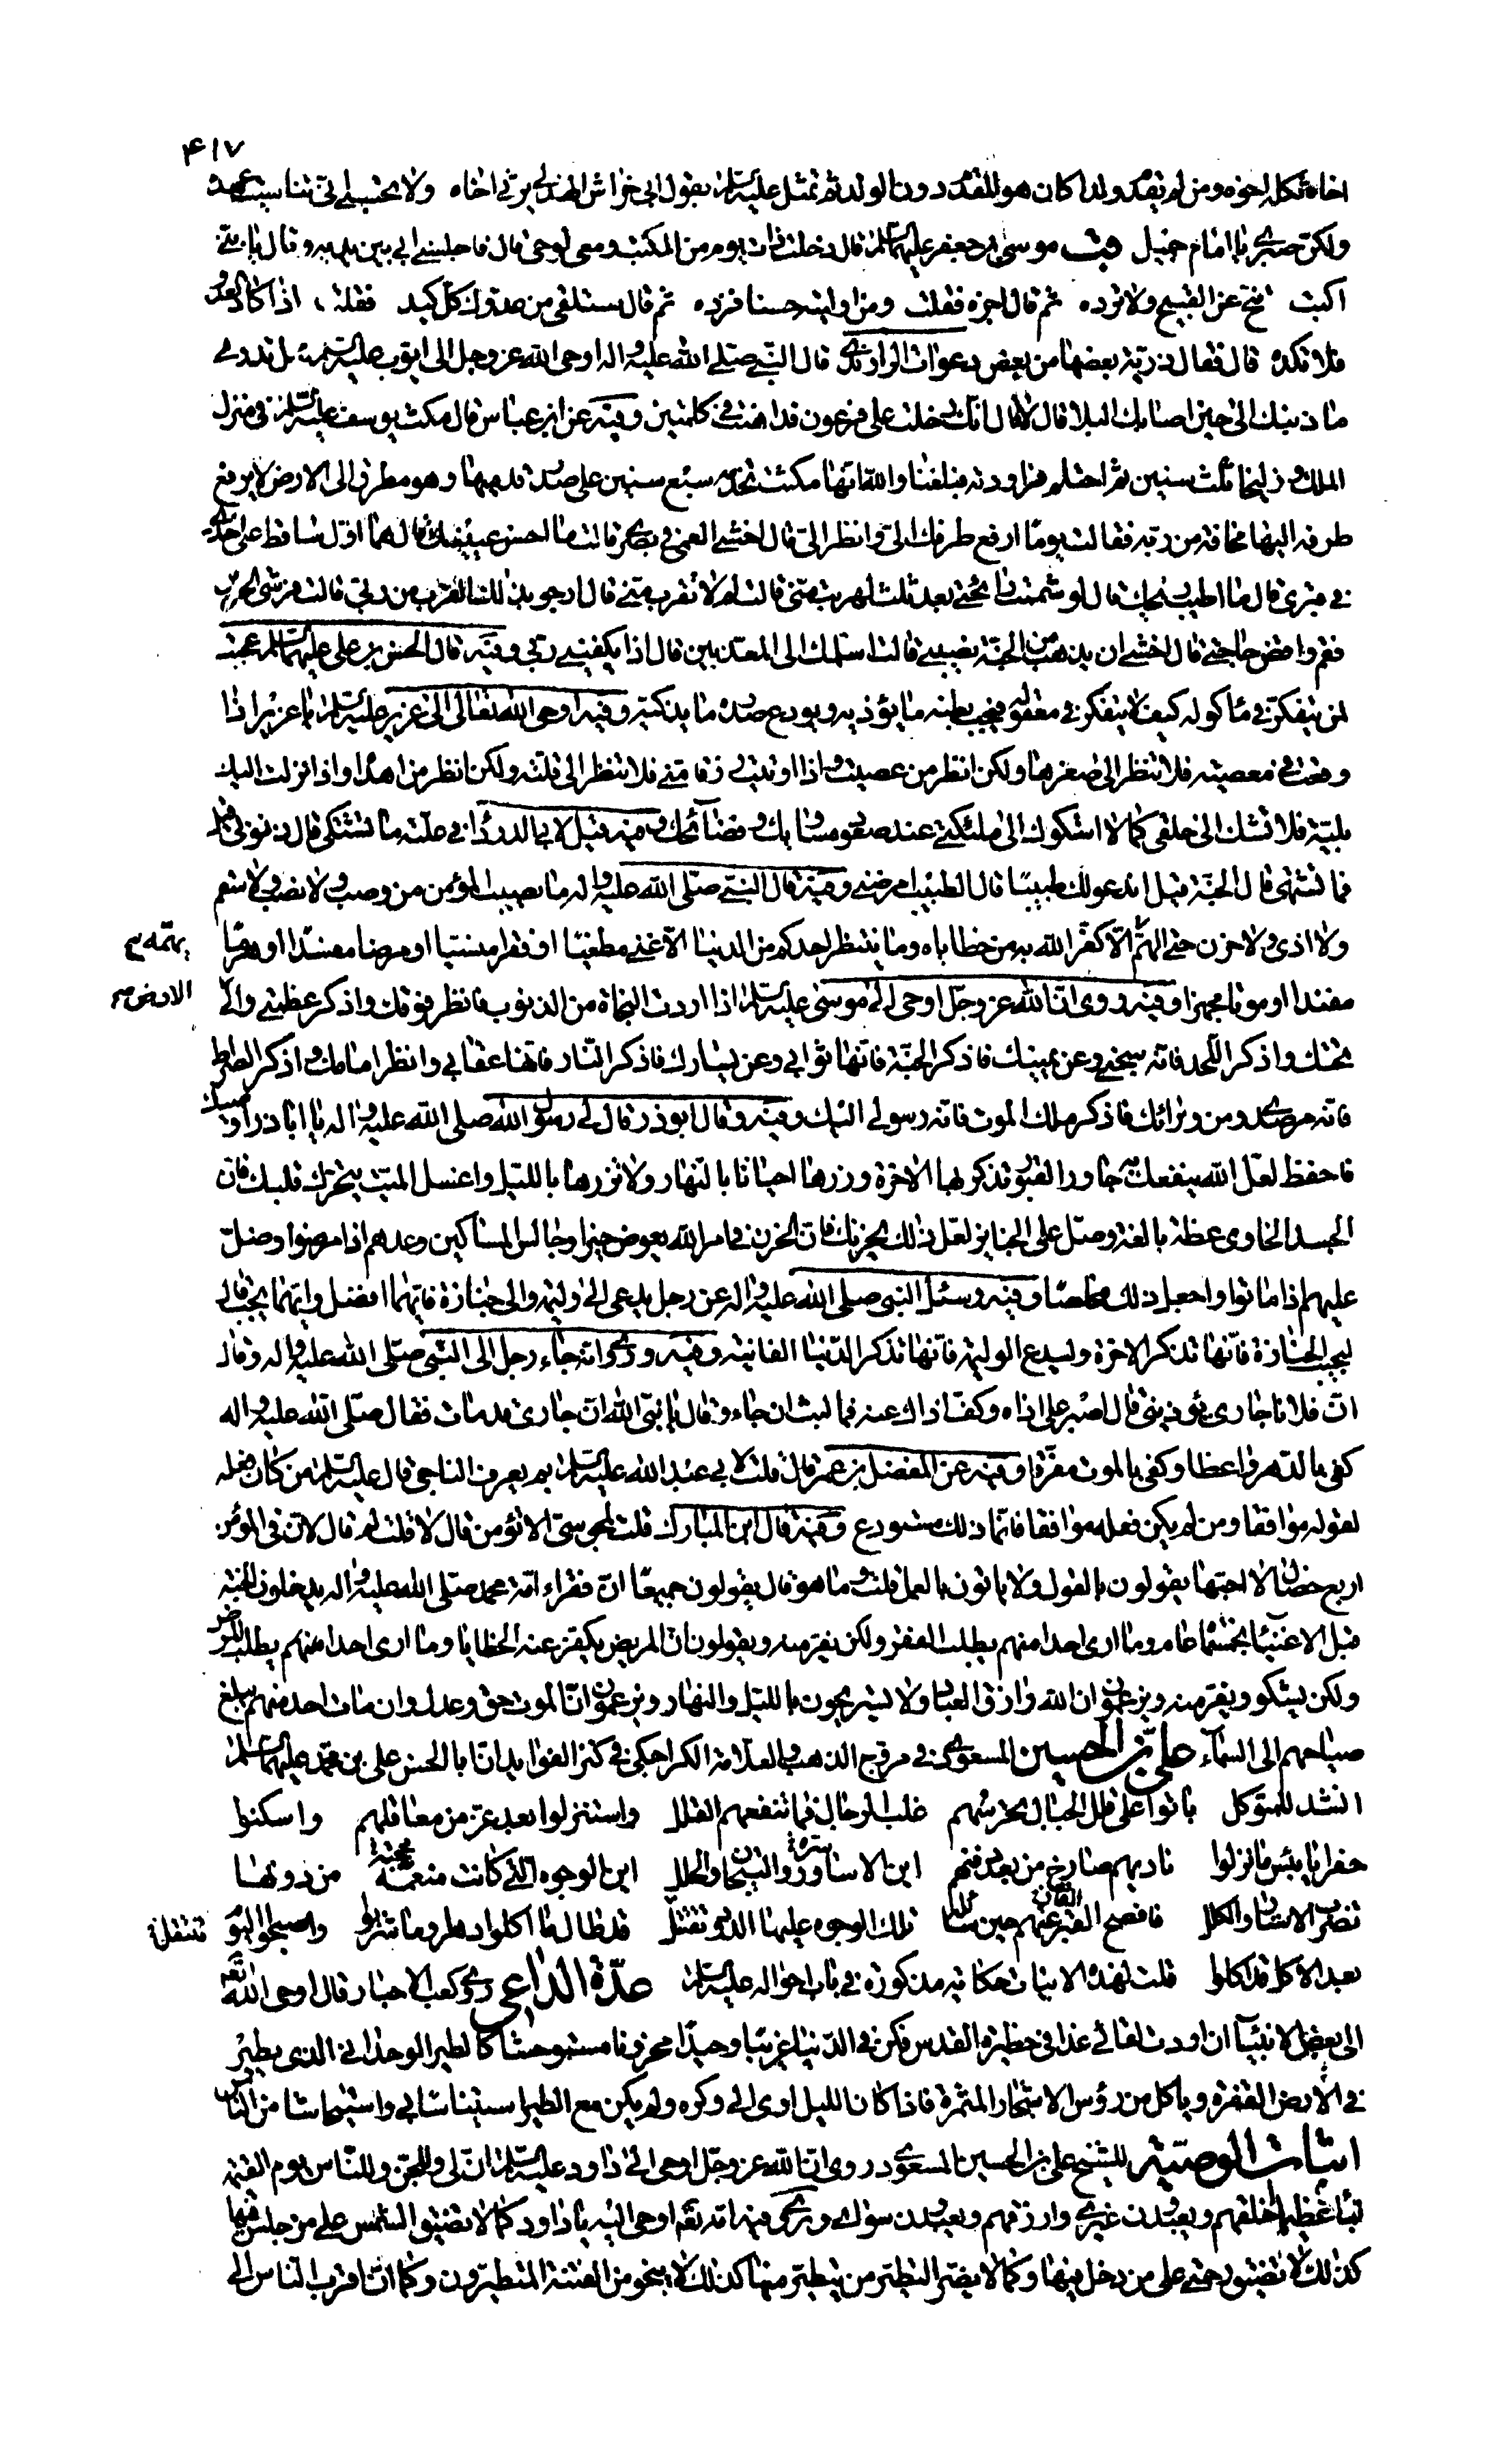 ۴۱۷
اخاه ثكله اخوه ومن لم يقدم ولدا كان هو المقدم دون الولد ثم تمثل عليه السلام بقول ابي خراش الهذلي يرثي اخاه ولا تحسبي اني تناسيت عهده
ولكن صبري يا امام جميل وفيه موسى بن جعفر عليهما السلم قال دخلت ذات يوم من المكتب ومعي لوحي قال فاجلسني ابي بين يديه وقال يا بني
اكتب تنح عن القبيح ولا ترده ثم قال اجزه فقلت ومن اوليته حسنا فزده ثم قال ستلقى من عدوك كل كيد فقلت اذا كاد العدو
فلا تكده قال فقال ذرية بعضها من بعض دعوات الراوندي قال النبي صلى الله عليه واله اوحى الله عز وجل الى ايوب عليه السلم هل تدري
ما ذنبك الي حين اصابك البلا قال لا قال انك دخلت على فرعون فداهنت في كلمتين وفيه عن ابن عباس قال مكث يوسف عليه السلم في منزل
الملك وزليخا ثلث سنين ثم احتلم فراودته فبلغنا والله انها مكثت تخدمه سبع سنين على صدر قدميها وهو مطرق الى الارض لا يرفع
طرفه اليها مخافة من ربه فقالت يوما ارفع طرفك الي وانظر الي قال اخشى العمى في بصري قالت ما احسن عينيك قال هما اول ساقط على خدي
في قبري قال ما اطيب ريحك قال لو شممت رائحتي بعد ثلث لهربت مني قالت لم لا تقرب مني قال ارجو بذلك القرب من ربي قالت فرشي الحرير
فقم واقض حاجتي قال اخشى ان يذهب من الجنة نصيبي قالت اسلمك الى المعذبين قال اذا يكفيني ربي وفيه قال الحسن بن علي عليهما السلم عجبت
لمن يتفكر في ماكوله كيف لا يتفكر في معقوله فيجنب بطنه ما يؤذيه ويودع صدره ما يذكيه وفيه اوحى الله تعالى الى عزير عليه السلم يا عزير اذا
وقعت في معصية فلا تنظر الى صغرها ولكن انظر من عصيت واذا اوتيت رزقا مني فلا تنظر الى قلته ولكن انظر من اهداه واذا نزلت اليك
بلية فلا تشك الى خلقي كما لا اشكوك الى ملئكتي عند صعود مساويك وفضائحك وفيه قيل لابي الدرداء في علته ما تشتكي قال ذنوبي قيل
فما تشتهي قال الجنة قيل اندعو لك طبيبا قال الطبيب امرضني وفيه قال النبي صلى الله عليه واله ما يصيب المؤمن من وصب ولا نصب ولا سقم
ولا اذى ولا حزن حتى الهم يهمه الا كفر الله به من خطاياه وما ينتظر احدكم من الدنيا الا غنى مطغيا او فقرا منسيا او مرضا مفسدا او هرما
مفندا او موتا مجهزا وفيه وروى ان الله عز وجل اوحى الى موسى عليه السلم اذا اردت النجاة من الذنوب فانظر فوقك واذكر عظمتي والى الارض
تحتك واذكر اللحد فانه سجني وعن يمينك فاذكر الجنة فانها ثوابي وعن يسارك فاذكر النار فانها عقابي وانظر امامك واذكر الصراط
فانه مرصدي ومن ورائك فاذكر ملك الموت فانه رسولي اليك وفيه وقال ابو ذر قال لي رسول الله صلى الله عليه واله يا ابا ذر اوصيك
فاحفظ لعل الله ينفعك به جاور القبور تذكر بها الاخرة وزرها احيانا بالنهار ولا تزرها بالليل واغسل الميت يتحرك قلبك فان
الجسد الخاوي عظة بالغة وصل على الجنايز لعل ذلك يحزنك فان الحزن في امر الله يعوض خيرا وجالس المساكين وعدهم اذا مرضوا وصل
عليهم اذا ماتوا واجعل ذلك مخلصا وفيه وسئل النبي صلى الله عليه واله عن رجل يدعى الى وليمة والى جنازة فايهما افضل وايهما يجيب قال
ليجيب الجنازة فانها تذكر الاخرة وليدع الوليمة فانها تذكر الدنيا الفانية وفيه وروى انه جاء رجل الى النبي صلى الله عليه واله وقال
ان فلانا جاري يؤذيني قال اصبر على اذاه وكف اذاك عنه فما لبث ان جاء وقال يا نبي الله ان جاري قد مات فقال صلى الله عليه واله
كفى بالدهر واعظا وكفى بالموت مفرقا وفيه عن المفضل بن عمر قال قلت لابي عبد الله عليه السلم بم يعرف الناجي قال عليه السلم من كان فعله
لقوله موافقا ومن لم يكن فعله موافقا فانما ذلك مستودع وفيه قال ابن المبارك قلت لمجوسي الا تؤمن قال لا قلت لم قال لان في المؤمنين
اربع خصال لا احبها يقولون بالقول ولا ياتون بالعمل قلت وما هو قال يقولون جميعا ان فقراء امة محمد صلى الله عليه واله يدخلون الجنة
قبل الاغنياء بخمسمائة عام وما ارى احدا منهم يطلب الفقر ولكن يفر منه ويقولون ان المريض يكفر عنه الخطايا وما ارى احدا منهم يطلب المرض
ولكن يشكو ويفر منه ويزعمون ان الله رازق العباد ولا يستريحون بالليل والنهار ويزعمون ان الموت حق وعدل وان مات احد منهم يبلغ
صياحهم الى السماء علي بن الحسين المسعودي في مروج الذهب والعلامة الكراجكي في كنز الفوايد ان ابا الحسن علي بن محمد عليهما السلم
انشد للمتوكل باتوا على قلل الجبال تحرسهم غلب الرجال فما تنفعهم القلل واستنزلوا بعد عز من معاقلهم واسكنوا
حفرا يا بئس ما نزلوا ناديهم صارخ من بعد دفنهم اين الاساور والتيجان والحلل اين الوجوه التي كانت منعمة من دونها
تضرب الاستار والكلل فافصح القبر عنهم حين سائلهم تلك الوجوه عليها الدود تنتقل قد طال ما اكلوا دهرا وما شربوا واصبحوا اليوم
بعد الاكل قد اكلوا قلت لهذه الابيات حكاية مذكورة في باب احواله عليه السلم عدة الداعي روى كعب الاحبار قال اوحى الله تعه
الى بعض الانبياء ان اردت لقائي غدا في حظيرة القدس فكن في الدنيا غريبا وحيدا محزونا مستوحشا كالطير الوحداني الذي يطير
في الارض القفرة وياكل من رؤس الاشجار المثمرة فاذا كان الليل اوى الى وكره ولم يكن مع الطير استيناسا بي واستيحاشا من الناس
اثبات الوصية للشيخ علي بن الحسين المسعودي روى ان الله عز وجل اوحى الى داود عليه السلم ان لي وللجن وللناس يوم القيمة
نبأ عظيما اخلقهم ويعبدون غيري وارزقهم ويعبدون سواي وروى فيه انه تعه اوحى اليه يا داود كما لا تضيق الشمس على من جلس فيها
كذلك لا تضيق رحمتي على من دخل فيها وكما لا يضر التطير من يتطير منها كذلك لا ينجو من الفتنة المتطيرون وكما ان اقرب الناس الي